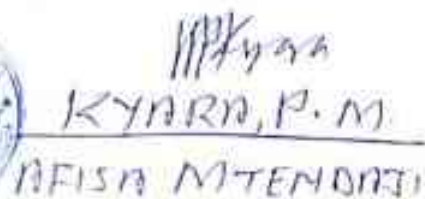 KYARA, P. M.
AFISA MTENDAJI